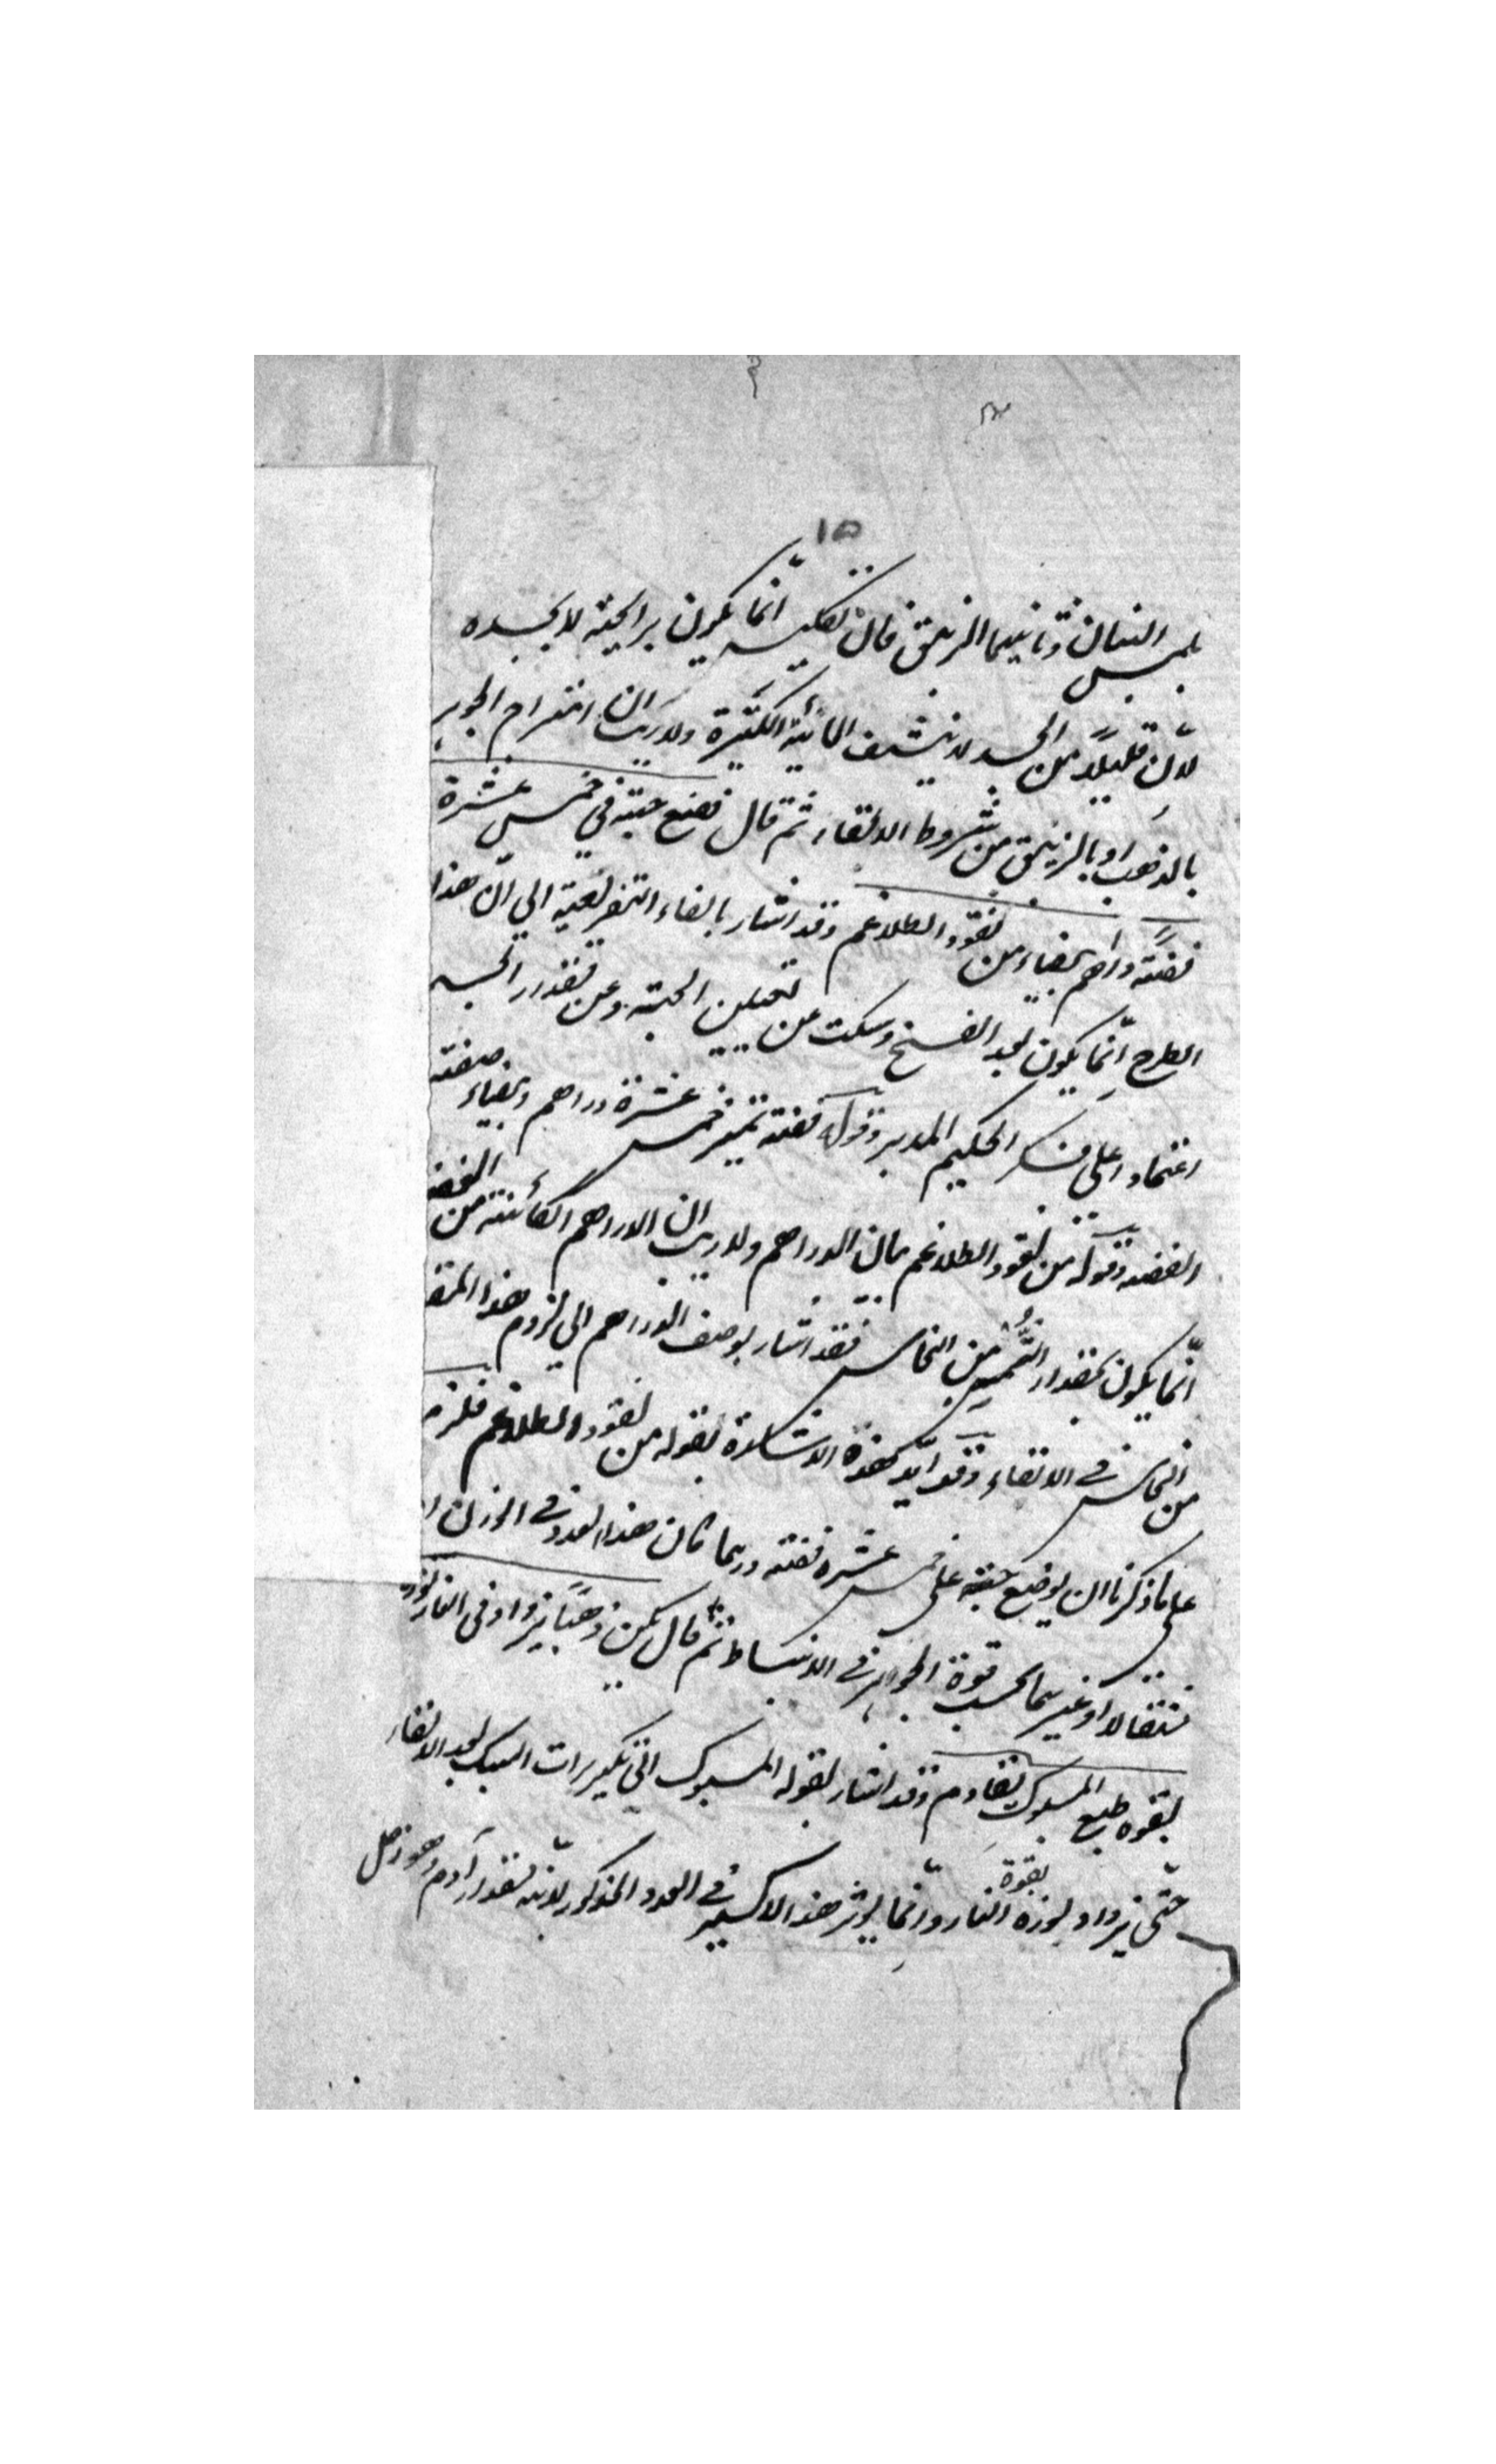 ١٥
بلمس النسان وثانيهما الزيبق فان تكليسه انما يكون برايحته لا بجسده
لانّ قليلاً من الجسد لا ينشف المائية الكثيرة ولا ريب ان امتزاج الجوهر
بالذهب او بالزيبق من شروط الالقاء ثم قال فضع حبته في خمس عشرة
فضة دراهم بيضاء من نقود الطلاغم وقد اشار بالفاء التفريعية الى انّ هذا
الطرح انّما يكون بعد الفسخ وسكت عن تعيين الحبة وعن تقدير الجسد
اعتمادا على فكر الحكيم المدبر وقوله فضة تمييز خمس عشرة دراهم وبيضاء صفته
الفضة وقوله من نقود الطلاغم بيان الدراهم ولا ريب ان الدراهم الكائنة من الفضة
انّما يكون بمقدار الثُّمن من النحاس فقد اشار بوصف الدراهم الى لزوم هذا المقد
من النحاس في الالقاء وقد ايّد بهذه الاشارة بقوله من نقود الطلاغم فلزم
على ما ذكرنا ان يوضع حبته على خمس عشرة فضة وربما كان هذا العدد في الوزن
مثقالا او غيرهما بحسب قوة الجواهر في الانبساط ثم قال يكن ذهبًا يزداد في النار نوره
بقوة طبع المسبوك تقادم وقد اشار بقوله المسبوك الى تكريرات السبك بعد الالقاء
حتّى يزداد نوره بقوة النار وانّما يوثر هذا الاكسير في العدد المذكور لانّه بقدر آدم وهو زحل